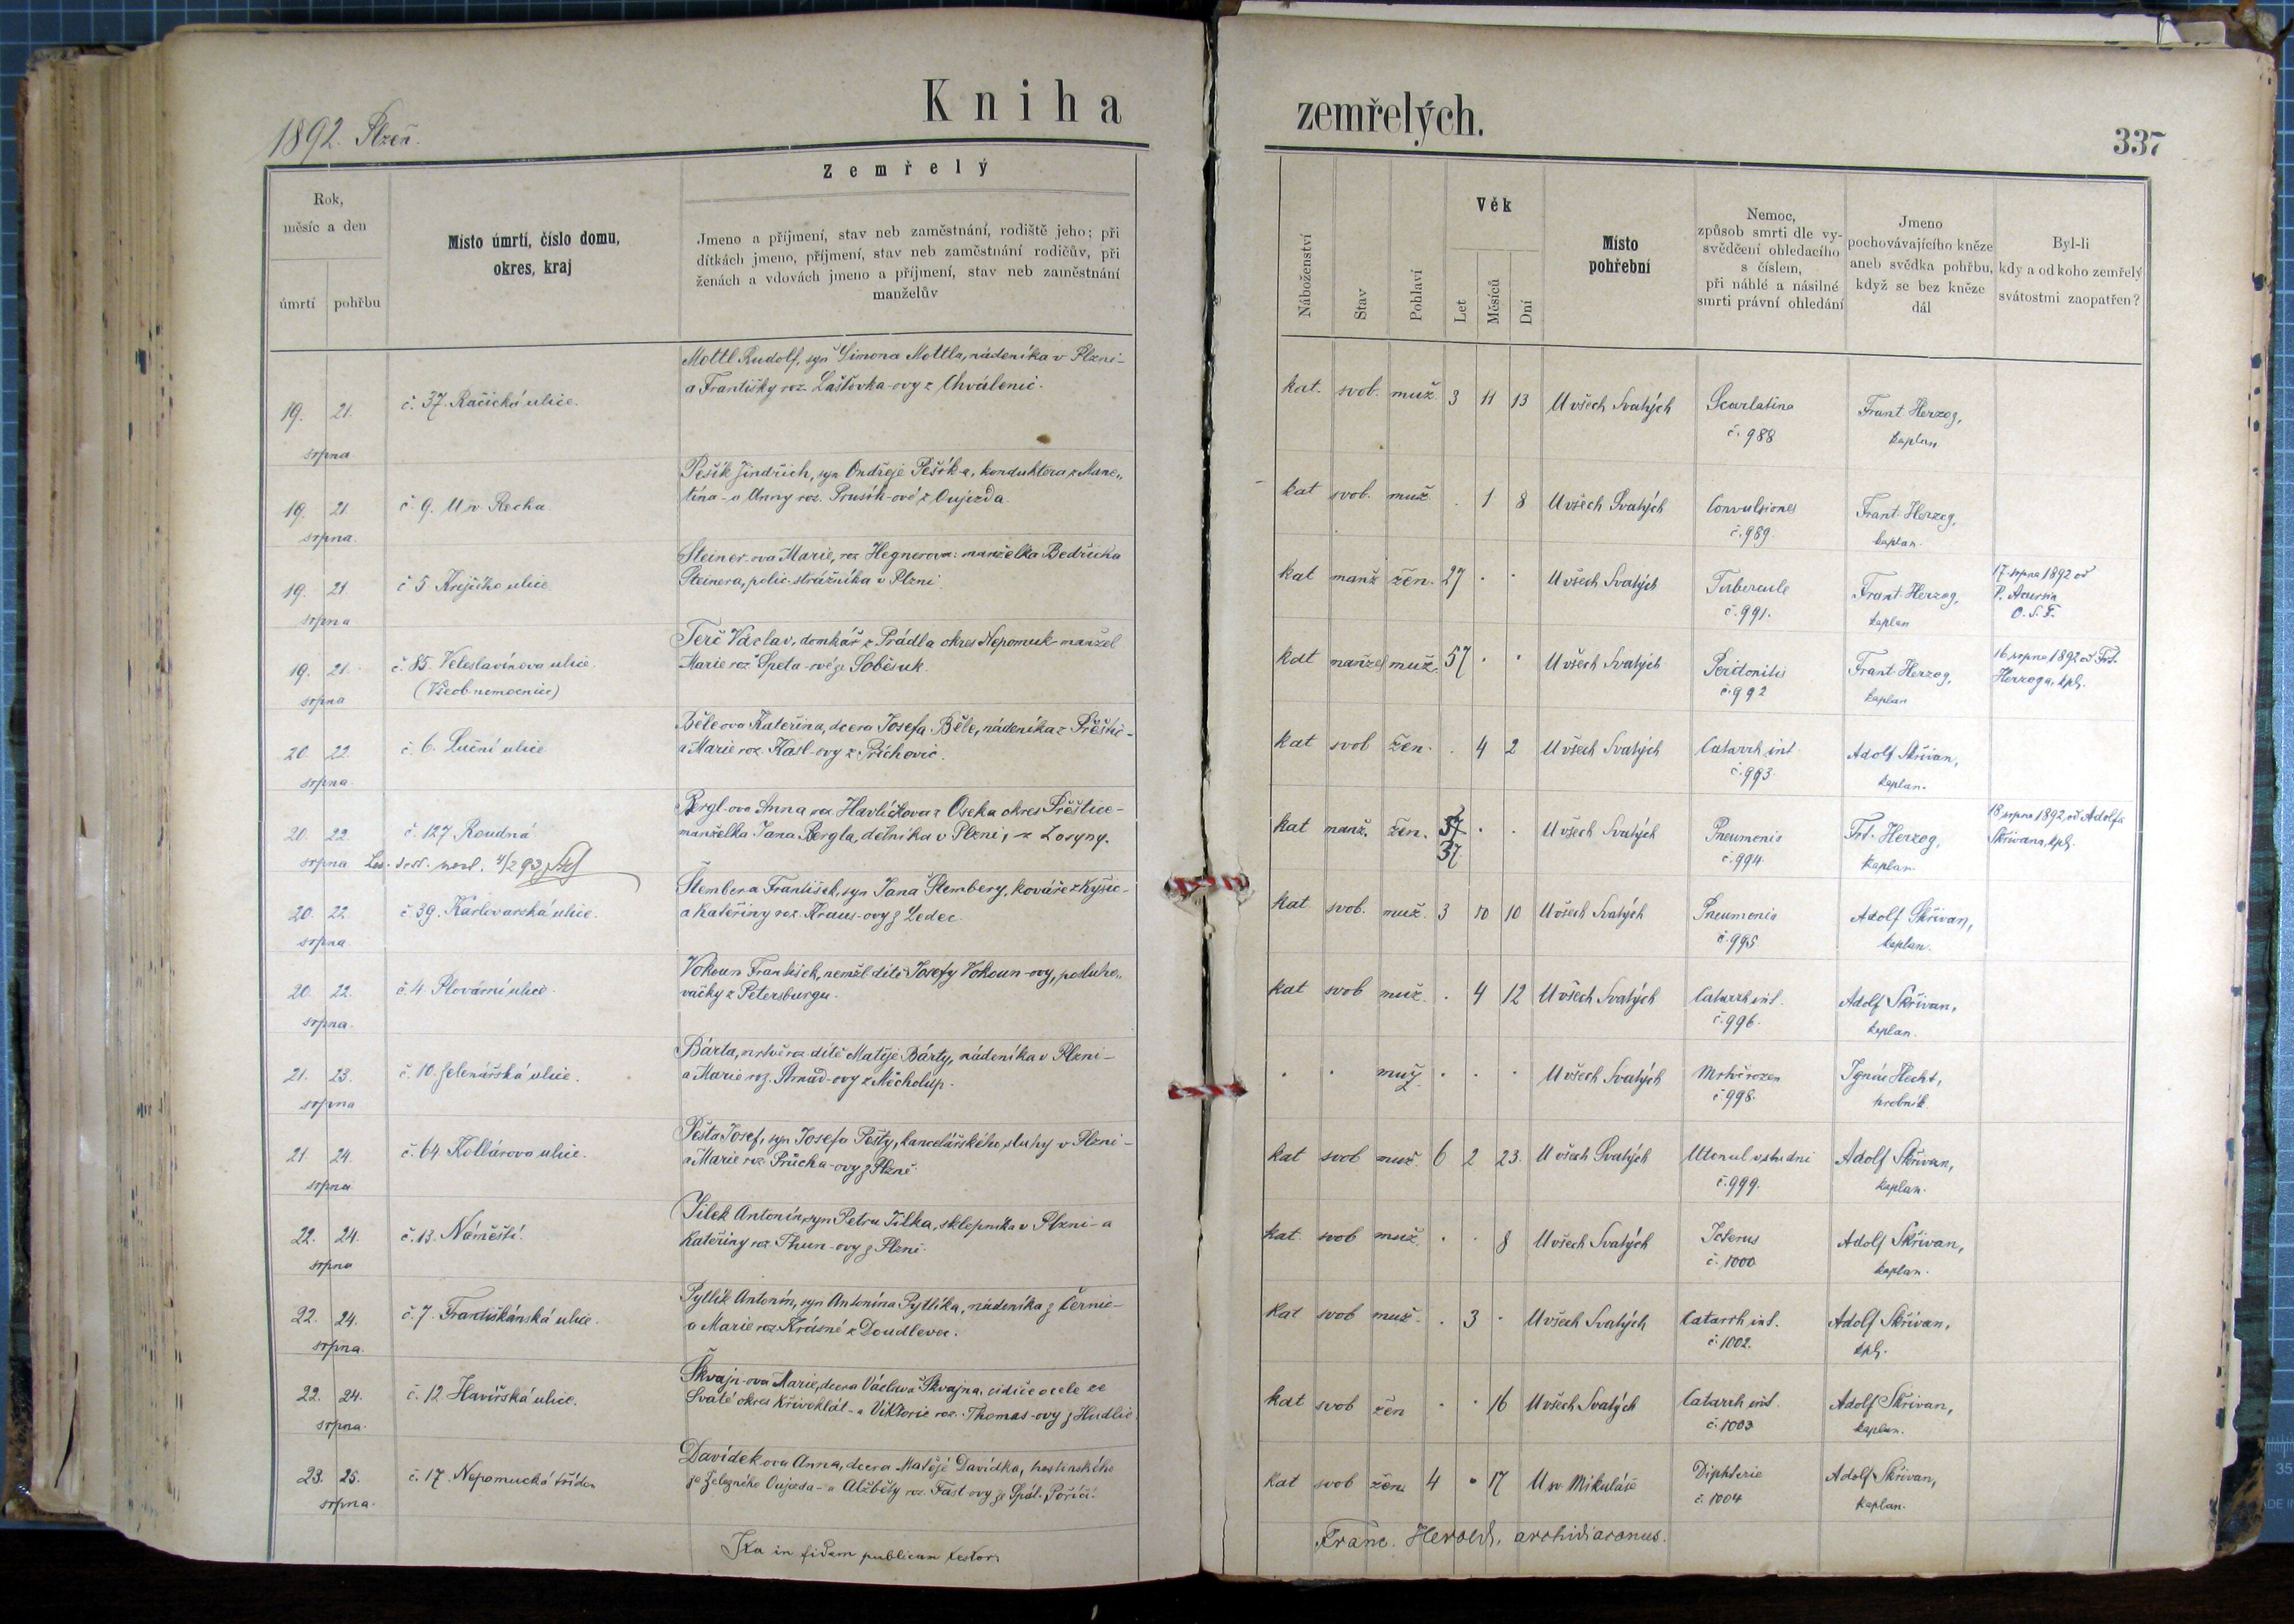 Kniha
1892. Plzeň.
Zemřelý
Rok,
měsíc a den
úmrtí pohřbu
Místo úmrtí, číslo domu,
okres, kraj
Jmeno a příjmení, stav neb zaměstnání, rodiště jeho; při
dítkách jmeno, příjmení, stav neb zaměstnání rodičův, při
ženách a vdovách jmeno a příjmení, stav neb zaměstnání
manželův
19. 21.
srpna
č. 37. Račická ulice.
Mottl Rudolf, syn Šimona Mottla, nádeníka v Plzni-
a Františky roz. Laštovka-ovy z Chválenic.
19. 21.
srpna.
č. 9. U sv. Rocha.
Pešík Jindřich, syn Ondřeje Pešíka, konduktera z Mane„
tína - a Anny roz. Prusík-ové z Oujezda.
19. 21.
srpna
č 5 Krejčího ulice.
Steiner-ova Marie, roz. Hegnerova: manželka Bedřicha
Steinera, polic. strážníka v Plzni
19. 21.
srpna
č 85. Veleslavínova ulice.
(Všeob. nemocnice)
Terč Václav, domkář z Prádla okres Nepomuk-manžel
Marie roz. Speta-ové z Soběsuk.
20. 22.
srpna.
č. 6. Luční ulice
Běleova Kateřina, dcera Josefa Běle, nádeníka z Přeštic-
a Marie roz. Kasl-ovy z Příchovic.
20. 22.
srpna
č. 127 Roudná
Bergl-ova Anna roz. Havlíčkova z Oseka okres Přeštice-
manželka Jana Bergla, dělníka v Plzni, z Losyny.
20. 22.
srpna.
č 39. Karlovarská ulice.
Štembera František, syn Jana Štembery, kováře z Kyšic-
a Kateřiny roz. Kraus-ovy z Ledec.
20. 22.
srpna.
č. 4. Plovární ulice.
Vokoun František, nemžl. dítě Josefy Vokoun-ovy, posluho„
vačky z Petersburgu.
21. 23.
srpna
č. 10. Jelenářská ulice.
Bárta, mrtvě roz. dítě Matěje Bárty, nádeníka v Plzni-
a Marie roz. Strnad-ovy z Měcholup.
21. 24.
srpna
č. 64 Kollárova ulice.
Pešta Josef, syn Josefa Pešty, kancelářského sluhy v Plzni-
a Marie roz. Průcha-ovy z Plzně.
22. 24.
srpna
č. 13. Náměstí.
Jílek Antonín, syn Petra Jílka, sklepníka v Plzni-a
Kateřiny roz. Thun-ovy z Plzně.
22. 24.
srpna.
č. 7. Františkánská ulice.
Pytlík Antonín, syn Antonína Pytlíka, nádeníka z Černic-
a Marie roz. Krásné z Doudlevec.
22. 24.
srpna.
č. 12 Havířská ulice.
Škvajn-ova Marie, dcera Václava Škvajna, cidiče ocele ze
Svaté okres Křivoklát-a Viktorie roz. Thomas-ovy z Hudlic.
23. 25.
srpna.
č. 17. Nepomucká třída
Davídek-ova Anna, dcera Matěje Davídka, hostinského
ze Železného Oujezda-a Alžběty roz. Fast-ovy ze Spál. Poříčí.
Ita in fidem publicam testor:
zemřelých.
337
Náboženství
Stav
Pohlaví
Věk
Let
Měsíců
Dní
Místo
pohřební
Nemoc,
způsob smrti dle vy-
svědčení ohledacího
s číslem,
při náhlé a násilné
smrti právní ohledání
Jmeno
pochovávajícího kněze
aneb svědka pohřbu,
když se bez kněze
dál
Byl-li
kdy a od koho zemřelý
svátostmi zaopatřen?
kat. svob. muž. 3 11 13 U všech Svatých Scarlatina Frant. Herzog,
č. 988 kaplan
kat svob. muž. . 1 8 U všech Svatých Convulsiones Frant. Herzog,
č. 989. kaplan.
kat manž žen. 27 . . U všech Svatých Tubercule Frant. Herzog, 17. srpna 1892 od
č. 991. kaplan P.
O. S. F.
kat manžel muž. 57 . . U všech Svatých Peritonitis Frant. Herzog, 16 srpna 1892 od Frt.
č. 992 kaplan Herzoga, kpl.
kat svob žen. . 4 2 U všech Svatých Catarrh int. Adolf Skřivan,
č. 993. kaplan.
kat manž. žen. 37 . . U všech Svatých Pneumonie Frt. Herzog, 18 srpna 1892, od Adolfa
37 č. 994. kaplan. Skřivana, kpl.
kat svob. muž. 3 10 10 U všech Svatých Pneumonia Adolf Skřivan,
č. 995 kaplan.
kat svob muž. . 4 12 U všech Svatých Catarrh int. Adolf Skřivan,
č. 996. kaplan.
. . muž. . . . U všech Svatých Mrtvě rozen Ignác Hecht,
č. 998. hrobník
kat svob muž. 6 2 23. U všech Svatých Utonul v studni Adolf Skřivan,
č. 999. kaplan.
kat svob muž. . . 8 U všech Svatých Icterus Adolf Skřivan,
č. 1000 kaplan.
kat svob muž. . 3 . U všech Svatých Catarrh int. Adolf Skřivan,
č. 1002. kpl.
kat svob žen . . 16 U všech Svatých Catarrh int. Adolf Skřivan,
č. 1003 kaplan.
kat svob žen 4 . 17 U sv. Mikuláše Diphterie Adolf Skřivan,
č. 1004 kaplan.
Franc. Herold, archidiaconus.